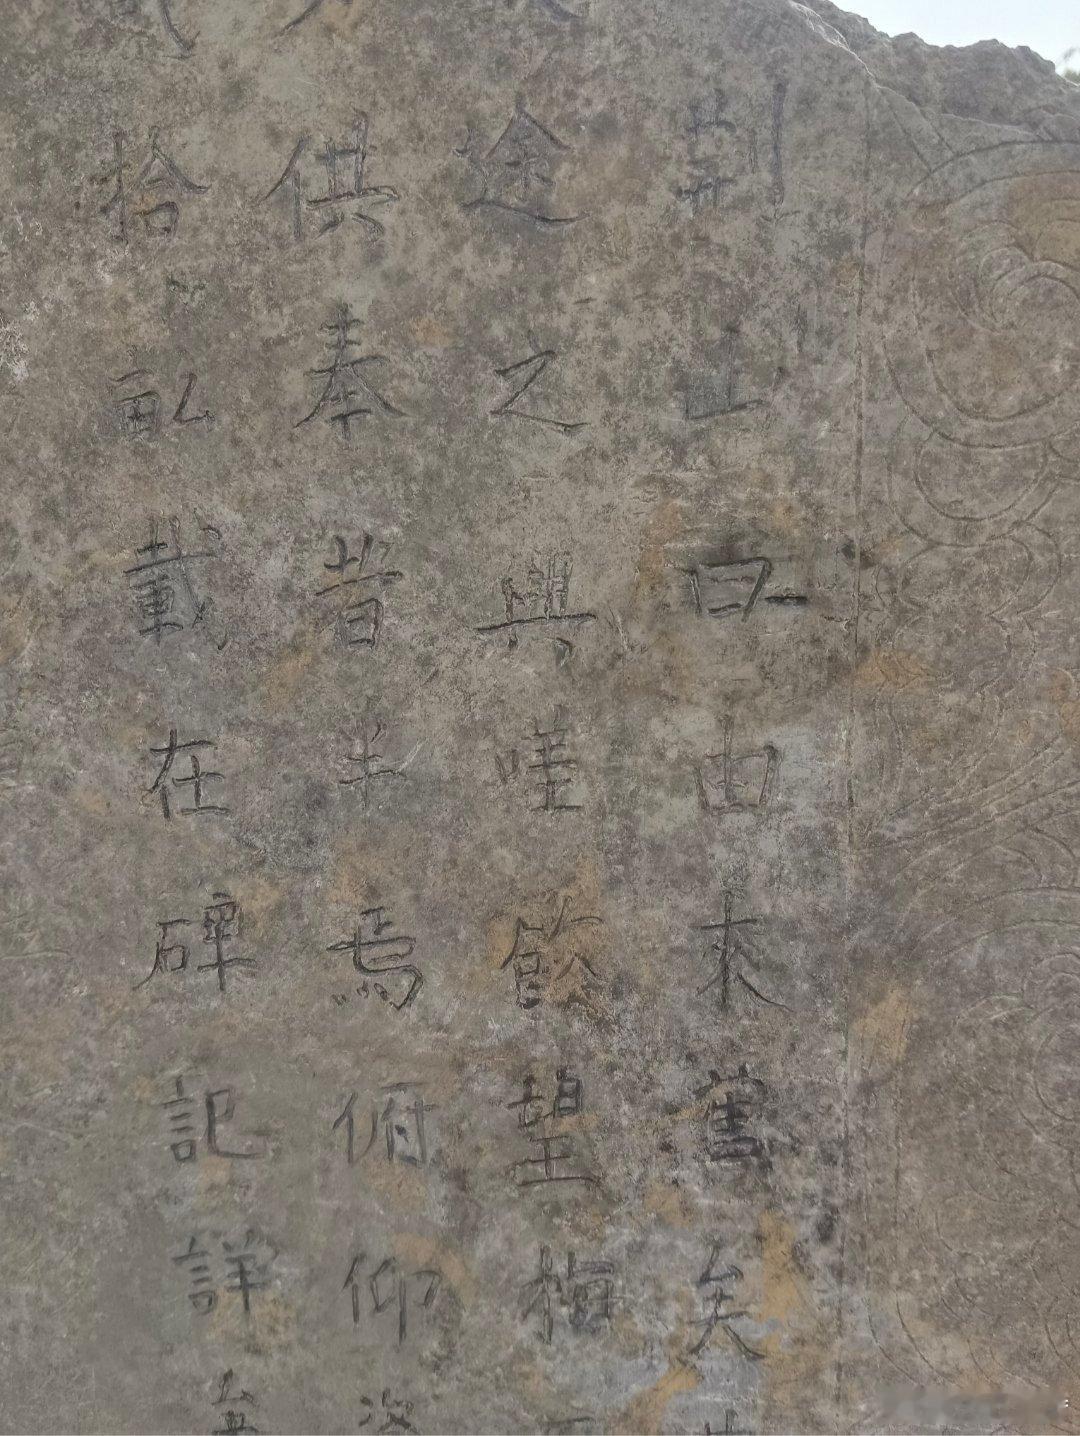 荆山由來舊矣
途之興嗟飲望梅
供奉者半焉俯仰次
拾畝載在碑記詳